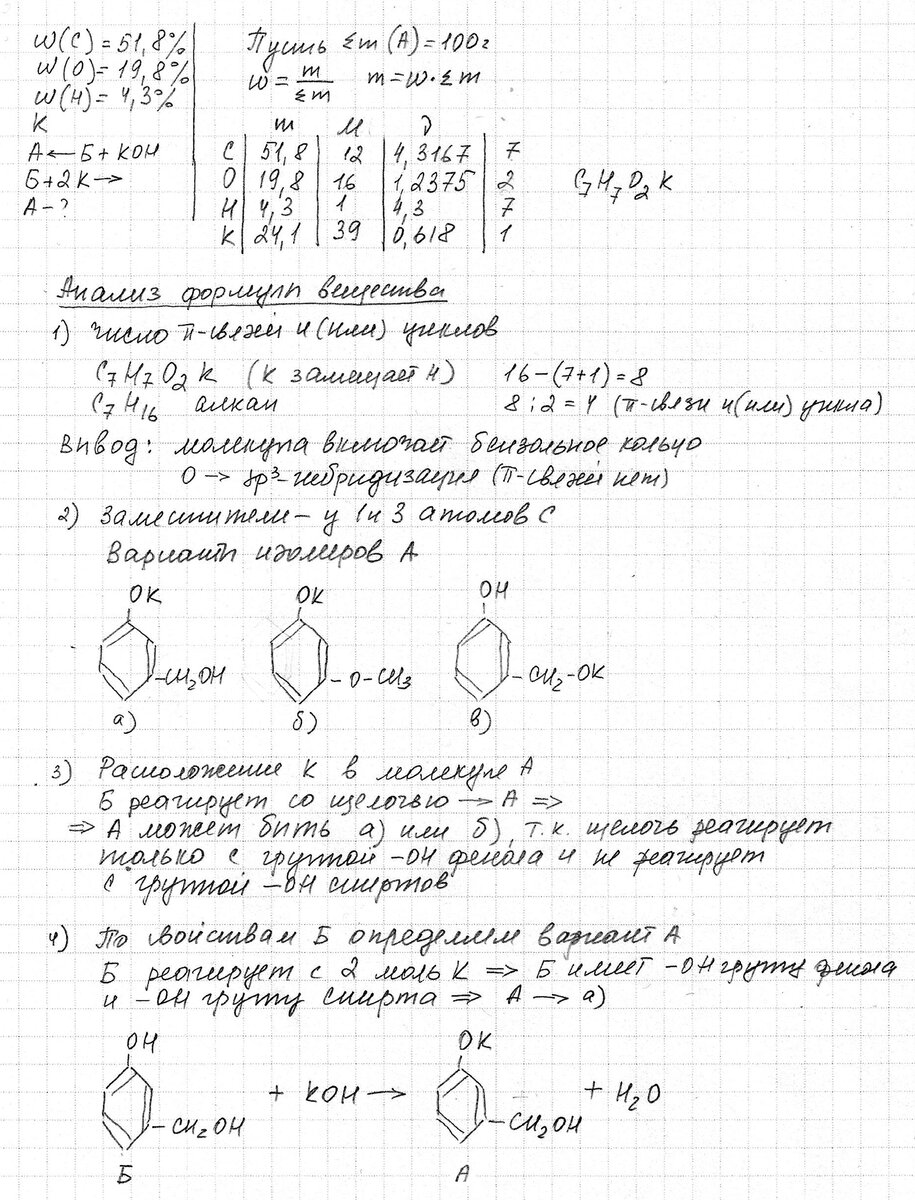 w(C) = 51,8%
w(O) = 19,8%
w(H) = 4,3%
К
А ← Б + KOH
Б + 2К →
А – ?
Пусть Σm (А) = 100г
w = m/Σm   m = w · Σm
m M ν
C | 51,8 | 12 | 4,3167 | 7
O | 19,8 | 16 | 1,2375 | 2
H | 4,3 | 1 | 4,3 | 7
K | 24,1 | 39 | 0,618 | 1
C₇H₇O₂K
Анализ формулы вещества
1) Число π-связей и(или) циклов
C₇H₇O₂K (К замещает H) 16 – (7+1) = 8
C₇H₁₆ алкан 8 : 2 = 4 (π-связи и(или) цикла)
Вывод: молекула включает бензольное кольцо
O → sp³-гибридизация (π-связей нет)
2) Заместители – у 1 и 3 атомов C
Варианты изомеров А
OK OK OH
–CH₂OH – O – CH₃ – CH₂–OK
а) б) в)
3) Расположение К в молекуле А
Б реагирует со щелочью → А ⇒
⇒ А может быть а) или б), т.к. щелочь реагирует
только с группой –OH фенола и не реагирует
с группой –OH спиртов
4) По свойствам Б определяем вариант А
Б реагирует с 2 моль К ⇒ Б имеет –OH группу фенола
и –OH группу спирта ⇒ А → а)
OH OK
+ KOH → + H₂O
–CH₂OH –CH₂OH
Б А